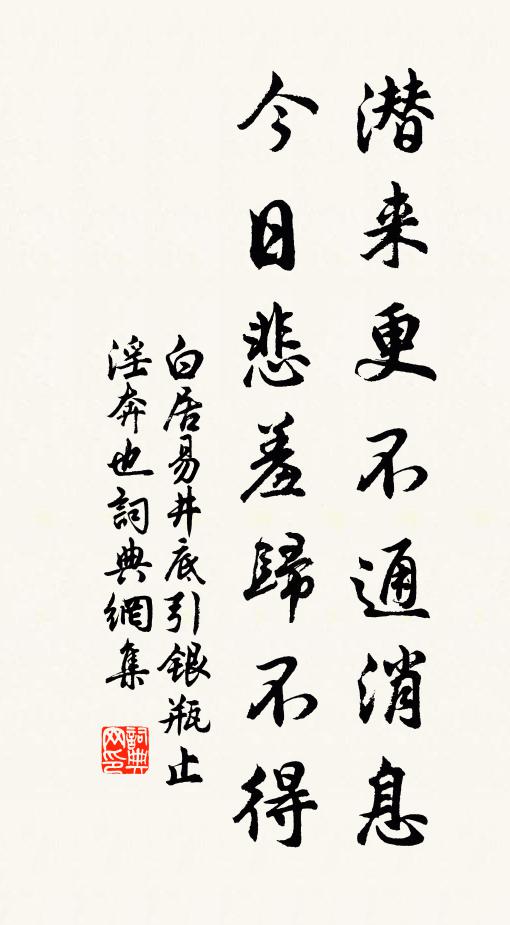 潜来更不通消息
今日悲羞歸不得
白居易井底引銀瓶止
淫奔也詞典網集
詞典网印